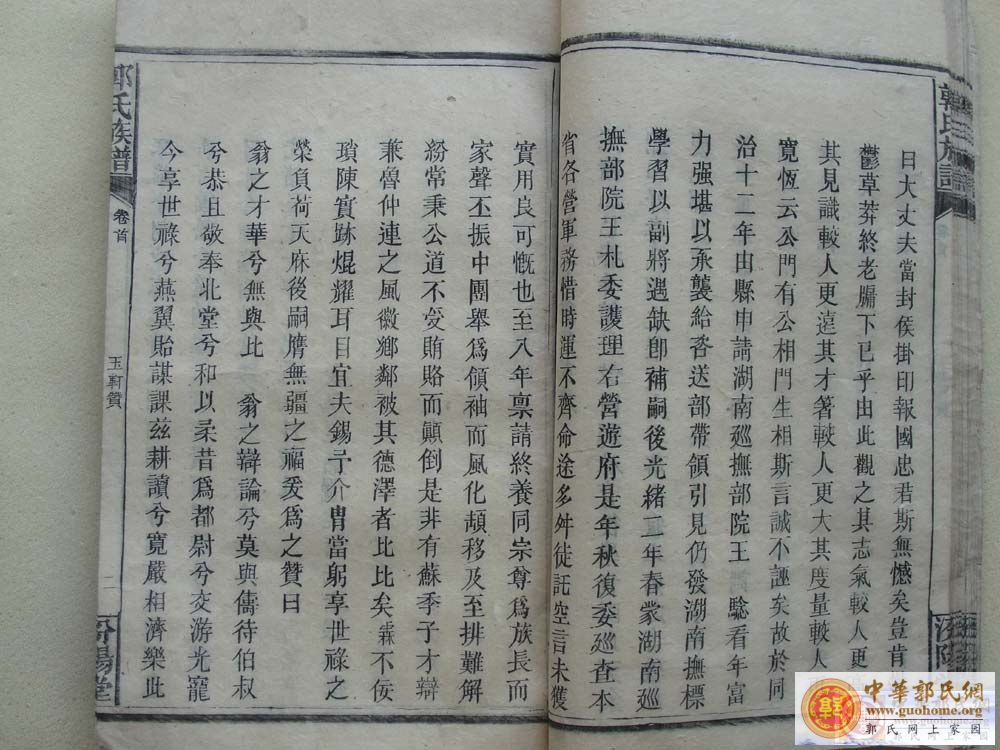 郭氏族譜
曰大丈夫當封侯掛印報國忠君斯無憾矣豈肯
鬱草莽終老牖下已乎由此觀之其志氣較人更
其見識較人更遠其才畧較人更大其度量較人
寬恆云公門有公相門生相斯言誠不誣矣故於同
治十二年由縣申請湖南巡撫部院王 驗看年富
力强堪以承襲給咨送部帶領引見仍發湖南撫標
學習以副將遇缺卽補嗣後光緒二年春蒙湖南巡
撫部院王札委護理右營遊府是年秋復委巡查本
省各營軍務惜時運不齊命途多舛徒託空言未獲
實用良可慨也至八年禀請終養同宗尊爲族長而
家聲丕振中團舉爲領袖而風化頓移及至排難解
紛常秉公道不受賄賂而顚倒是非有蘇季子才辯
兼魯仲連之風徽鄉鄰被其德澤者比比矣霖不佞
瑣陳實跡焜耀耳目宜夫錫予介胄當躬享世祿之
榮負荷天庥後嗣膺無疆之福爰爲之贊曰
翁之才華兮無與比 翁之辯論兮莫與儔待伯叔
兮恭且敬奉北堂兮和以柔昔爲都尉兮交游光寵
今享世祿兮燕翼貽謀課茲耕讀兮寛嚴相濟樂此
郭氏族譜
卷首
玉軒贊
二
汾陽堂
中華郭氏網
www.guohome.org
郭氏網上家園